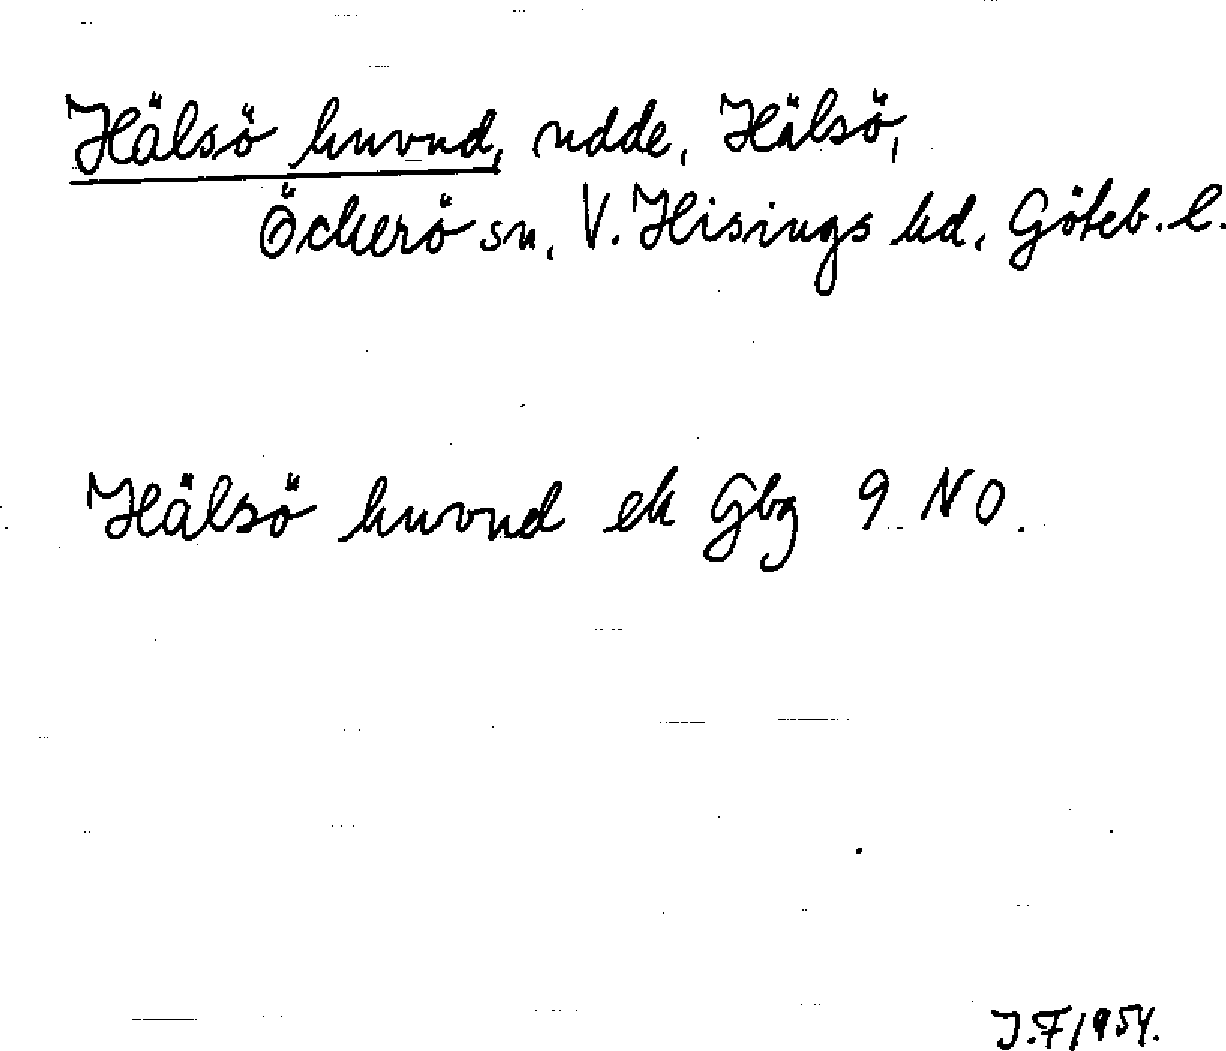 Hälsö huvud, udde, Hälsö,
Öckerö sn, V. Hisings hd, Göteb. l.
Hälsö huvud ek Gbg 9 NO.
J.F 1954.